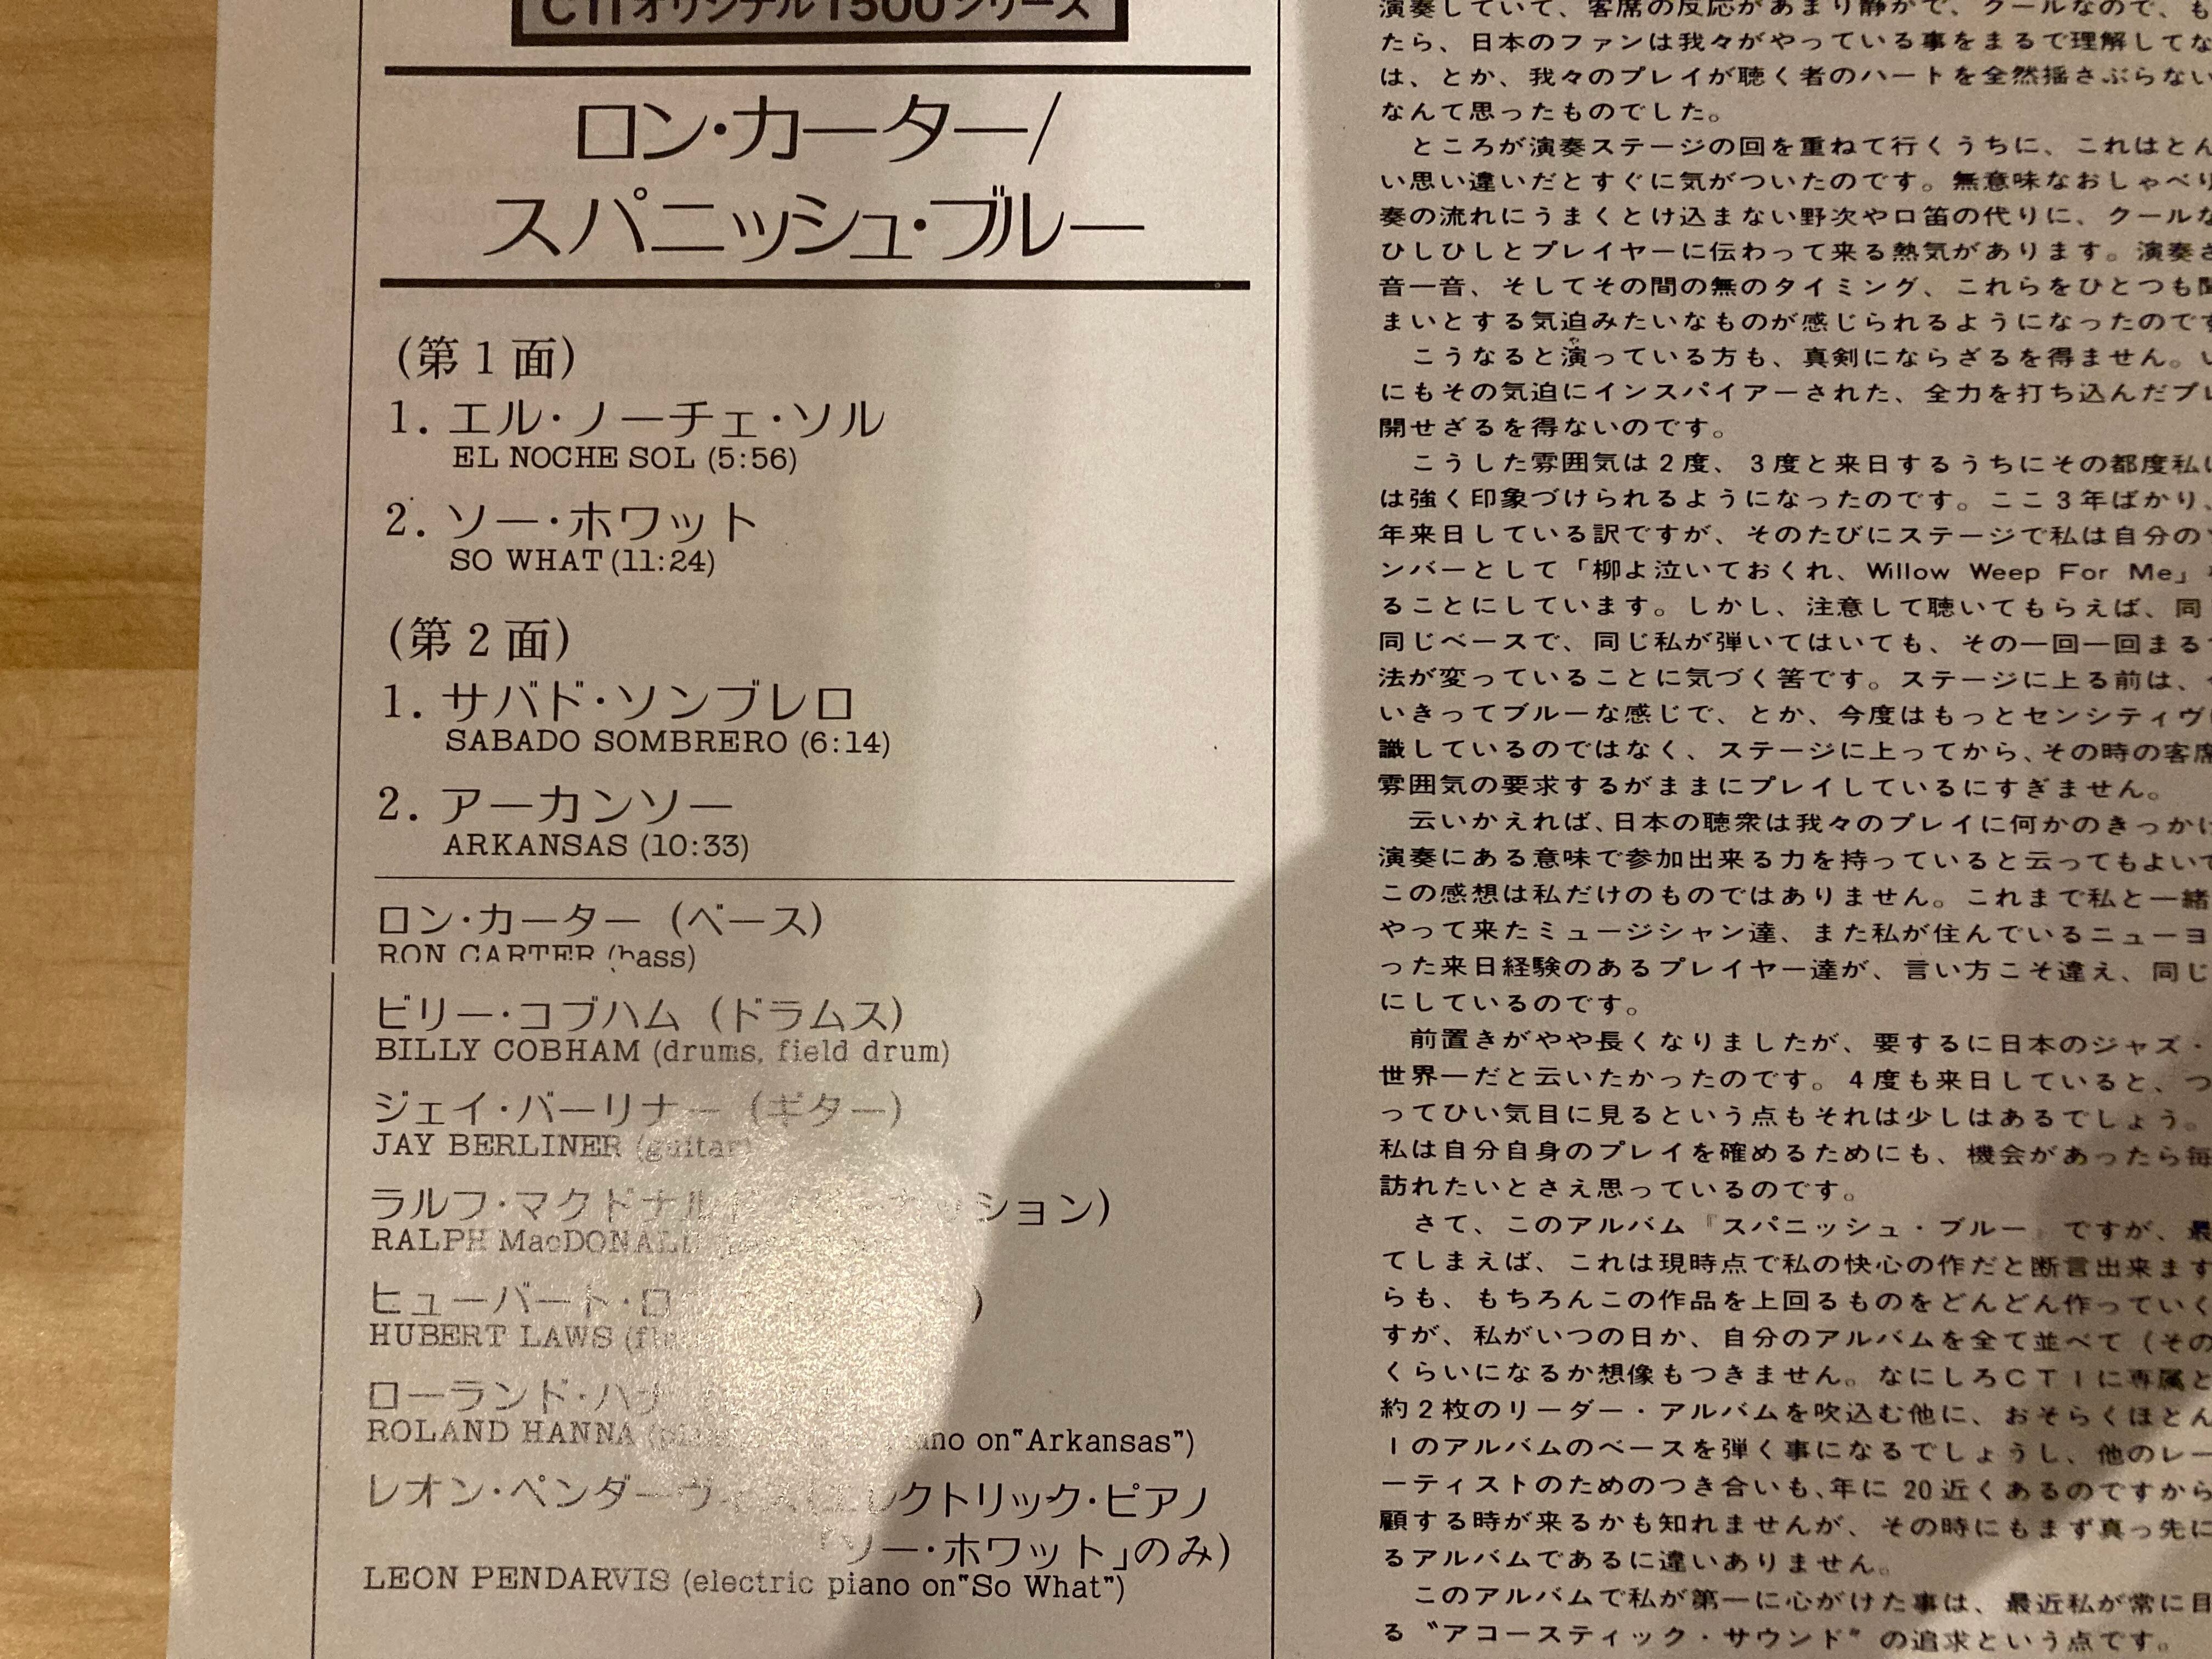 CTIオリジナル1500シリーズ
ロン・カーター/
スパニッシュ・ブルー
(第1面)
1. エル・ノーチェ・ソル
EL NOCHE SOL (5:56)
2. ソー・ホワット
SO WHAT (11:24)
(第2面)
1. サバド・ソンブレロ
SABADO SOMBRERO (6:14)
2. アーカンソー
ARKANSAS (10:33)
ロン・カーター (ベース)
RON CARTER (bass)
ビリー・コブハム (ドラムス)
BILLY COBHAM (drums, field drum)
ジェイ・バーリナー (ギター)
JAY BERLINER (guitar)
ラルフ・マクドナルド
RALPH MacDONALD
ヒューバート・ロ
HUBERT LAWS
ローランド・ハナ
ROLAND HANNA piano on "Arkansas")
レオン・ペンダーヴィス (エレクトリック・ピアノ
「ソー・ホワット」のみ)
LEON PENDARVIS (electric piano on "So What")
演奏していて、客席の反応があまり静かで、クールなので、も
たら、日本のファンは我々がやっている事をまるで理解してな
は、とか、我々のプレイが聴く者のハートを全然揺さぶらない
なんて思ったものでした。
ところが演奏ステージの回を重ねて行くうちに、これはとん
い思い違いだとすぐに気がついたのです。無意味なおしゃべり
奏の流れにうまくとけ込まない野次や口笛の代りに、クールな
ひしひしとプレイヤーに伝わって来る熱気があります。演奏さ
音一音、そしてその間の無のタイミング、これらをひとつも聞
まいとする気迫みたいなものが感じられるようになったのです
こうなると演っている方も、真剣にならざるを得ません。い
にもその気迫にインスパイアーされた、全力を打ち込んだプレ
開せざるを得ないのです。
こうした雰囲気は2度、3度と来日するうちにその都度私に
は強く印象づけられるようになったのです。ここ3年ばかり、
年来日している訳ですが、そのたびにステージで私は自分のソ
ンバーとして「柳よ泣いておくれ、Willow Weep For Me」
ることにしています。しかし、注意して聴いてもらえば、同
同じベースで、同じ私が弾いてはいても、その一回一回まるで
法が変っていることに気づく筈です。ステージに上る前は、
いきってブルーな感じで、とか、今度はもっとセンシティヴに
識しているのではなく、ステージに上ってから、その時の客席
雰囲気の要求するがままにプレイしているにすぎません。
云いかえれば、日本の聴衆は我々のプレイに何かのきっかけ
演奏にある意味で参加出来る力を持っていると云ってもよいで
この感想は私だけのものではありません。これまで私と一緒
やって来たミュージシャン達、また私が住んでいるニューヨ
った来日経験のあるプレイヤー達が、言い方こそ違え、同じ
にしているのです。
前置きがやや長くなりましたが、要するに日本のジャズ・
世界一だと云いたかったのです。4度も来日していると、つ
ってひい気目に見るという点もそれは少しはあるでしょう。
私は自分自身のプレイを確めるためにも、機会があったら毎
訪れたいとさえ思っているのです。
さて、このアルバム『スパニッシュ・ブルー』ですが、最
てしまえば、これは現時点で私の快心の作だと断言出来ます
らも、もちろんこの作品を上回るものをどんどん作っていく
すが、私がいつの日か、自分のアルバムを全て並べて(その
くらいになるか想像もつきません。なにしろCTIに専属と
約2枚のリーダー・アルバムを吹込む他に、おそらくほとん
Iのアルバムのベースを弾く事になるでしょうし、他のレー
ーティストのためのつき合いも、年に20近くあるのですから
顧する時が来るかも知れませんが、その時にもまず真っ先に
るアルバムであるに違いありません。
このアルバムで私が第一に心がけた事は、最近私が常に目
る〝アコースティック・サウンド〞の追求という点です。